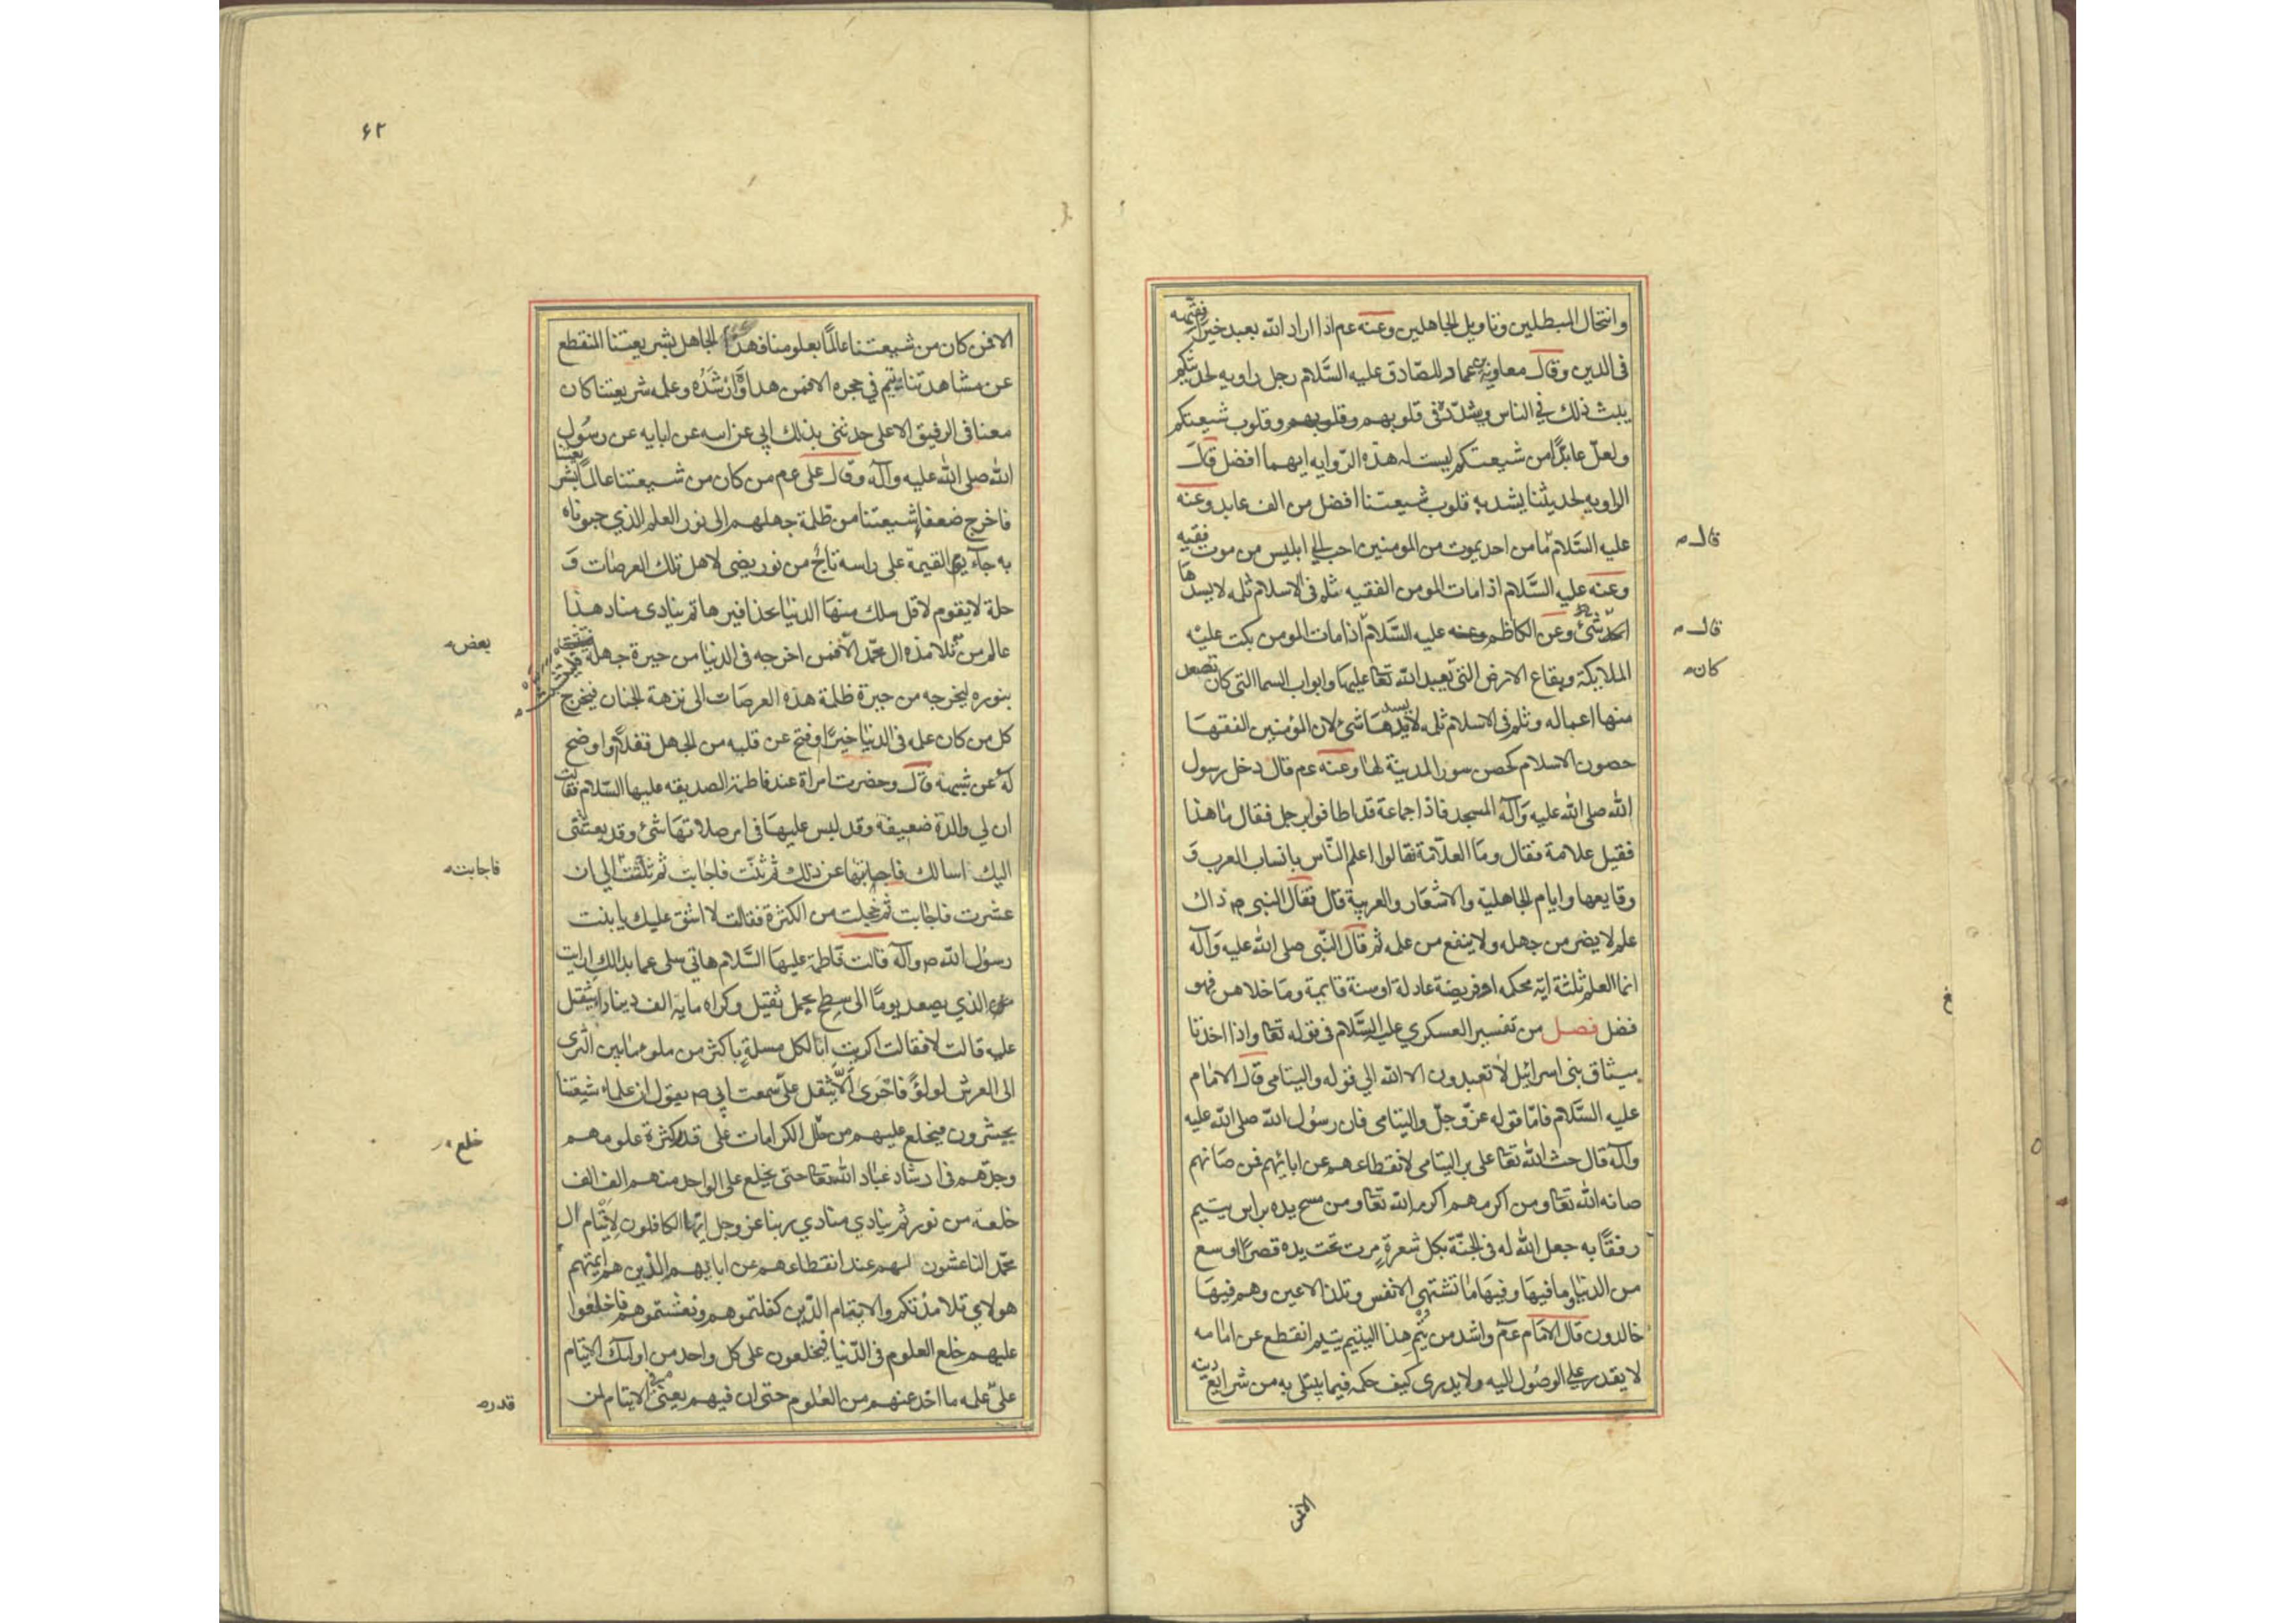 وانتحال المبطلين وتاويل الجاهلين وعنه عم اذا اراد الله بعبد خيرا فقهه
فى الدين وقال معاوية بن عمار للصّادق عليه السَّلام رجل راويه لحديثكم
يبث ذلك فى الناس ويشدّده فى قلوبهم وقلوبهم وقلوب شيعتكم
ولعلّ عابدًا من شيعتكم ليست له هذه الرّوايه ايهما افضل قال
الراويه لحديثنا يشد به قلوب شيعتنا افضل من الف عابد وعنه
عليه السَّلام ما من احد يموت من المومنين احب الى ابليس من موت فقيه
وعنه عليه السَّلام اذا مات المومن الفقيه ثلم فى الاسلام ثلمه لا يسدها
شئ وعن الكاظم وعنه عليه السَّلام اذا مات المومن بكت عليْه
الملايكة وبقاع الارض التى يعبد الله تعا عليها وابواب السما التى كان تصعد
منها اعماله وثلم فى الاسلام ثلمه لا يسدها شئ لان المؤمنين الفقها
حصون الاسلام كحصن سور المدينة لها وعنه عم قال دخل رسول
الله صلى الله عليه وَآله المسجد فاذا جماعة قد اطافوا برجل فقال ما هذا
فقيل علامة فقال وما العلاّمة فقالوا اعلم النّاس بانساب العرب وَ
وقايعها وايام الجاهليّة والاشعَار والعربية قال فقال النبى ص ذاك
علم لا يضر من جهله ولا ينفع من علمه ثم قال النّبى صلى الله عليه وَآله
انما العلم ثلثة ايّه محكمه او فريضة عادلة او سنة قايمة وما خلاهن فهو
فضل فصل من تفسير العسكري عليه السَّلام فى قوله تعا واذا اخذنا
ميثاق بنى اسرائيل لا تعبدون الا الله الي قوله واليتامى قال الامام
عليه السَّلام فامّا قوله عزّوجلّ واليتامى فان رسُول الله صلى الله عليه
وآله قال حث الله تعا على بر اليتامى لانقطاعهم عن ابائهم فمن صانهم
صانه الله تعا ومن اكرمهم اكرمه الله تعا ومن مسح يده براس يتيم
رفقًا به جعل الله له فى الجنّة بكل شعرةٍ مرت تحت يده قصرًا اوسع
من الدنيا وما فيها وفيها ما تشتهى الانفس وتلذ الاعين وهم فيها
خالدون قال الامَام عم واشد من يُتْم هذا اليتيم يتيم انقطع عن امامه
لا يقدر على الوصُول اليه ولا يدرى كيف حكمه فيما يبتلى به من شرايع دينه
قال
قال
كان
الافمن
٦٢
الا فمن كان من شيعتنا عالمًا بعلومنا فهذا الجاهل بشريعتنا المنقطع
عن مشاهدتنا يتيم في حجره الا فمن هداه وَارْشَدُه وعلمه شريعتنا كان
معنا فى الرفيق الاعلى حدثنى بذلك ابي عن ابيه عن ابايه عن رسُول
الله صلى الله عليه وآله وقال على عم من كان من شيعتنا عالمًا بشريعتنا
فاخرج ضعفا شيعتنا من ظلمة جهلهم الى نور العلم الذي حبوناه
به جآء يوم القيمة على راسه تاج من نور يضى لاهل تلك العرصات وَ
حلة لا يقوم لاقل سلك منها الدنيا بحذافيرها ثم ينادى مناد هذا
عالم من تلامذه ال محمّد الا فمن اخرجه فى الدنيا من حيرة جهله فليتشبث
بنوره ليخرجه من حيرة ظلمة هذه العرصات الى نزهة الجنان فيخرج
كل من كان علمه فى الدنيا خيرًا او فتح عن قلبه من الجهل قفلاً او اوضح
لهُ عن شبهه قال وحضرت امراة عند فاطمة الصديقه عليها السّلام فقالت
ان لي والدة ضعيفة وقد لبس عليها فى امر صلاتها شئ وقد بعثتنى
اليك اسالك فاجابتها عن ذلك ثم ثنّت فاجابت ثم ثلّثت الي ان
عشرت فاجابت ثم خجلت من الكثرة فقالت لا اشق عليك يا بنت
رسول الله ص وآله قالت فاطمة عليها السَّلام هاتى سلى عما بدالك ارايت
من الذي يصعد يومًا الى سطح بحمل ثقيل وكراه مايه الف دينار ايثقل
عليه قالت لا فقالت اكريت انا لكل مسلةٍ باكثر من ملو ما بين الثرى
الى العرش لولؤً فاحرى الاّ يثقل علىّ سمعت ابي ص يقول ان علماء شيعتنا
يحشرون فيخلع عليهم من حلل الكرامات على قدر كثرة علومهم
وجدّهم فى ارشاد عباد الله تعا حتى يخلع على الواحد منهم الف الف
خلعه من نور ثم ينادي منادي ربنا عز وجل ايها الكافلون لايتام ال
محمّد الناعشون لهم عند انقطاعهم عن ابايهم الذين هم ائمتهم
هولاي تلامذتكم والايتام الذين كفلتموهم ونعشتموهم فاخلعوا
عليهم خلع العلوم فى الدّنيا فيخلعون على كل واحد من اولئك الايتام
على علمه ما اخذ عنهم من العلوم حتى ان فيهم يعنى فى الايتام لمن
بعض
فاجابته
خلع
قدر